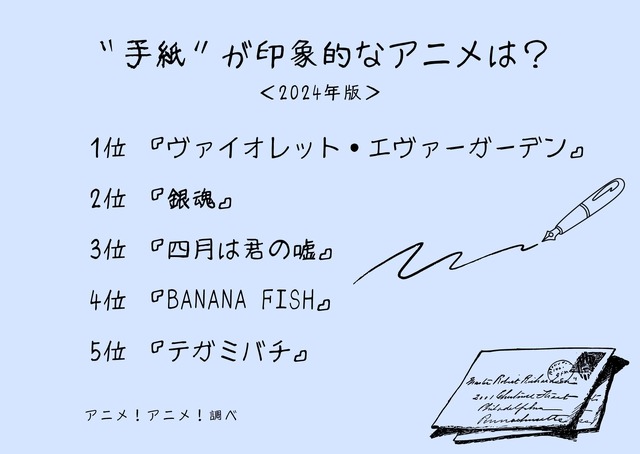 "手紙"が印象的なアニメは？
＜2024年版＞
1位 『ヴァイオレット・エヴァーガーデン』
2位 『銀魂』
3位 『四月は君の嘘』
4位 『BANANA FISH』
5位 『テガミバチ』
アニメ！アニメ！調べ
Robert
2001
Street
Philadelphia